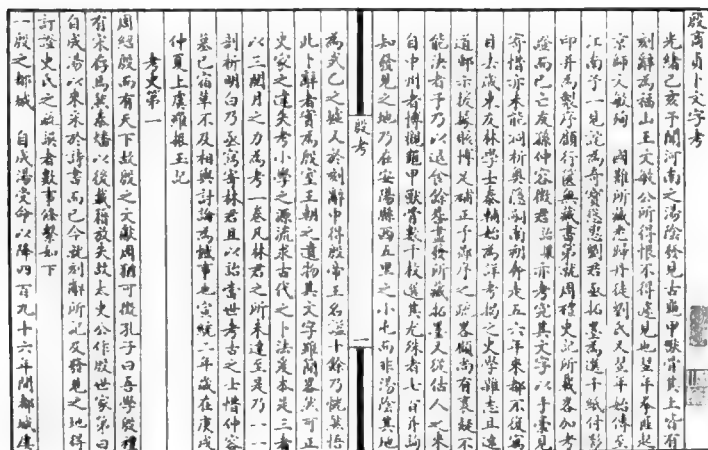 殷商貞卜文字考
光緒己亥予聞河南之湯陰發見古龜甲獸骨其上皆有
刻辭為福山王文敏公所得恨不得遽見也翌年拳匪起
京師文敏殉 國難所藏悉歸丹徒劉氏又翌年始傳至
江南予一見詫為奇寶慫恿劉君亟拓墨為選千紙付影
印并為製序顧行篋無藏書第就周禮史記所載畧加考
證而已亡友孫仲容徵君詒讓亦考究其文字以手藁見
寄惜亦未能洞析奧隱嗣南朔奔走五六年來都不復寓
目去歲東友林學士泰輔始為詳考揭之史學雜志且遠
道郵示援據賅博足補正予曩序之疏畧顧尚有褱疑不
能決者予乃以退食餘晷盡發所藏拓墨又從估人之來
自中州者博觀龜甲獸骨數千枚選其尤殊者七百并詢
知發見之地乃在安陽縣西五里之小屯而非湯陰其地
殷考
一
為武乙之墟又於刻辭中得殷帝王名諡十餘乃恍然悟
此卜辭者實為殷室王朝之遺物其文字雖簡畧然可正
史家之違失考小學之源流求古代之卜法爰本是三者
以三閱月之力為考一卷凡林君之所未達至是乃一一
剖析明白乃亟寫寄林君且以詒當世考古之士惜仲容
墓已宿草不及相與討論為憾事也宣統二年歲在庚戌
仲夏上虞羅振玉記
考史第一
周繼殷而有天下故殷之文獻周猶可徵孔子曰吾學殷禮
有宋存焉其秦燔以後載籍放失故太史公作殷世家第曰
自成湯以來采於詩書而已今就刻辭所記及發見之地得
訂證史氏之缺誤者數事條繫如下
一殷之都城 自成湯受命以降四百九十六年間都城屢